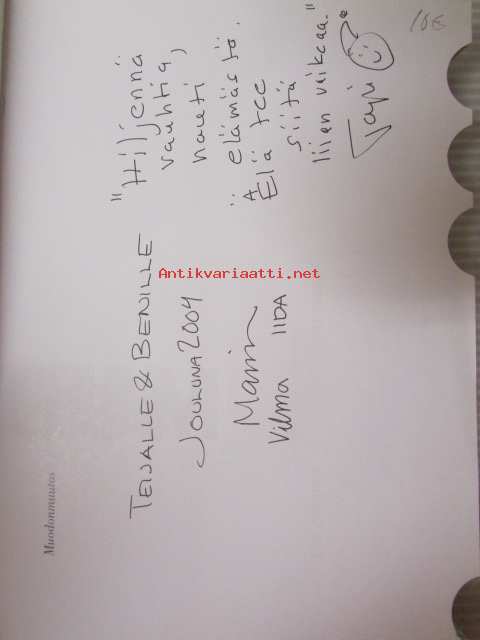 Muodonmuutos
TEIJALLE & BENILLE
JOULUNA 2004
Manni
Vilma IIDA
"Hiljennä
vauhtia,
nauti
elämästä.
Älä tee
siitä
liien vikeaa."
Tapi
18€
Antikvariaatti.net